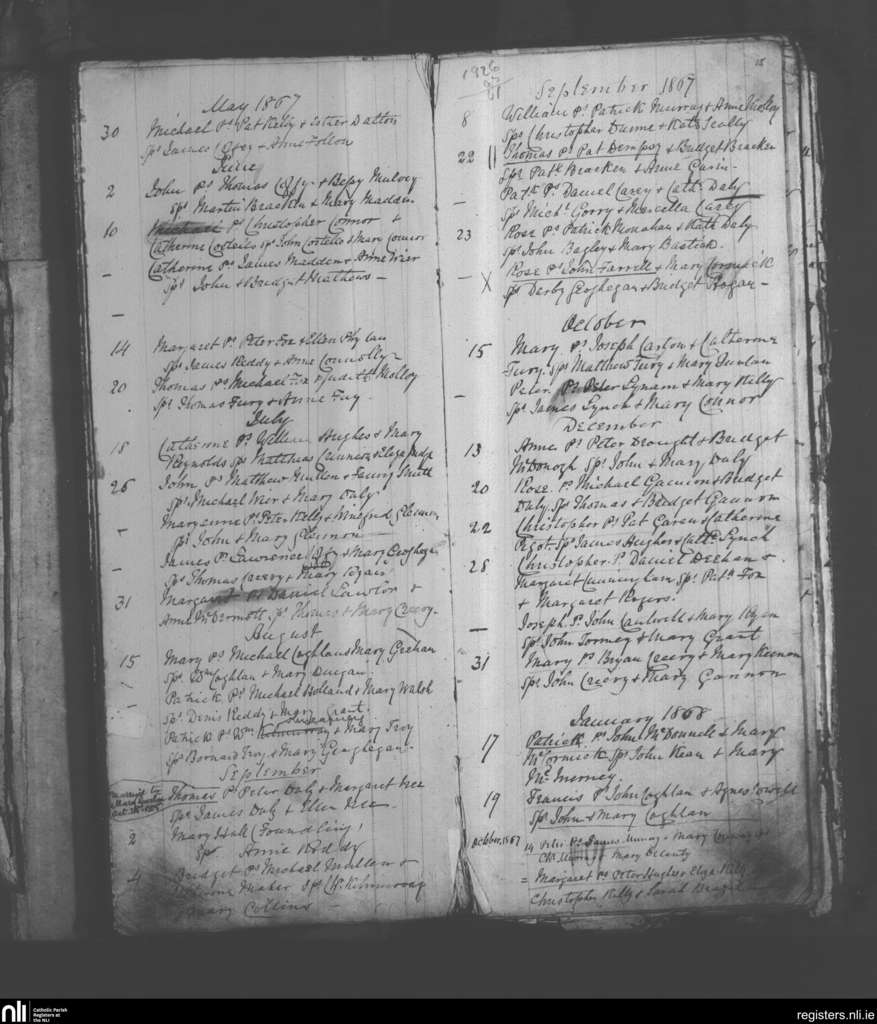 May 1867
30 Michael Ps Pat Kelly & Esther Dalton
Sps James & Anne
June
2 John Ps Thomas & Bessy Mulvey
Sps Martin Bracken & Mary Madden
10 Michael Ps Christopher Connor &
Catherine Costello Sps John Costello & Mary Connor
- Catherine Ps James Madden & Anne
Sps John & Bridget Matthews -
-
14 Margaret Ps Peter Fox & Ellen Phylan
Sps James Reddy & Anne Connolly
20 Thomas Ps Michael Fox & Judith Molloy
Sps Thomas Fury & Anne Fury.
July
18 Catherine Ps William Hughes & Mary
Reynolds Sps Matthias & Eliza
26 John Ps Matthew & Fanny
Sps Michael Weir & Mary Daly
- Maryanne Ps Peter Kelly & Winefred Glennon
Sps John & Mary Glennon
- James Ps Lawrence & Mary Geoghegan
Sps Thomas & Mary Egan
31 Margaret Ps Daniel Lawlor &
Anne McDermott Sps Thomas & Mary
August
15 Mary Ps Michael Coghlan & Mary Geehan
Sps Wm Coghlan & Mary Duigan
- Patrick Ps Michael Holland & Mary Walsh
Sps Denis Reddy & Mary Grant.
- Patrick Ps Wm & Mary Troy
Sps Bernard Troy & Mary Geoghegan.
September
married to
Mary
Oct
Thomas Ps Peter Daly & Margaret Nee
Sps James Daly & Ellen Nee
2 Mary Hall (Foundling)
Sps Annie Reddy
4 Bridget Ps Michael Mullan &
Maher Sps Ch. Kilmurray
& Mary Collins
1926
18
September 1867
8 William Ps Patrick Murray & Anne Molloy
Sps Christopher Dunne & Kate Scally
22 Thomas Ps Pat Dempsy & Bridget Bracken
Sps Patk Bracken & Anne
- Patk Ps Daniel Carey & Cathe Daly
Sps Michl Gorry & Marcella Carey
23 Rose Ps Patrick Monahan & Kath Daly
Sps John Bagley & Mary Bustick.
- X Rose Ps John Farrell & Mary Cormick
Sps Derby Geoghegan & Bridget Hogan -
October
15 Mary Ps Joseph Carlon & Catherine
Fury. Sps Matthew Fury & Mary Quinlan
- Peter Ps Peter Lynam & Mary Kelly
Sps James Lynch & Mary Connor
December
13 Anne Ps Peter Drought & Bridget
McDonogh Sps John & Mary Daly
20 Rose Ps Michael Gannon & Bridget
Daly. Sps Thomas & Bridget Gannon
22 Christopher Ps Pat & Catherine
Pigot. Sps James Hughes & Cathe Lynch
28 Christopher Ps Daniel Deehan &
Margaret Sps Patk Fox
& Margaret Rogers.
- Joseph Ps John Caulwell & Mary Ryan
Sps John Tormey & Mary Grant
31 Mary Ps Bryan & Mary Keenan
Sps John & Mary Gannon
January 1868
17 Patrick Ps John McDonnell & Mary
McCormick Sps John Kean & Mary
McInerney.
19 Francis Ps John Coghlan & Agnes
Sps John & Mary Coghlan
October 1867 14 Peter Ps James Murray & Mary
Ch. & Mary Delanty
= Margaret Ps Peter Hughes Eliza Kelly
Christopher Kelly & Sarah
nli Catholic Parish
Registers at
the NLI
registers.nli.ie